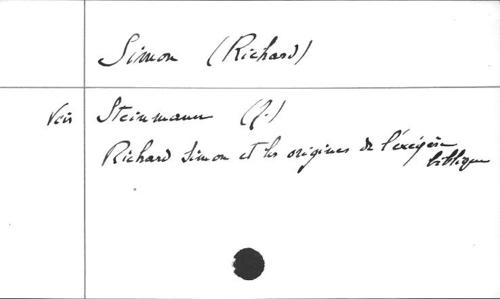 Simon (Richard)
Voir Steinmann (J.)
Richard Simon et les origines de l'exégèse
biblique